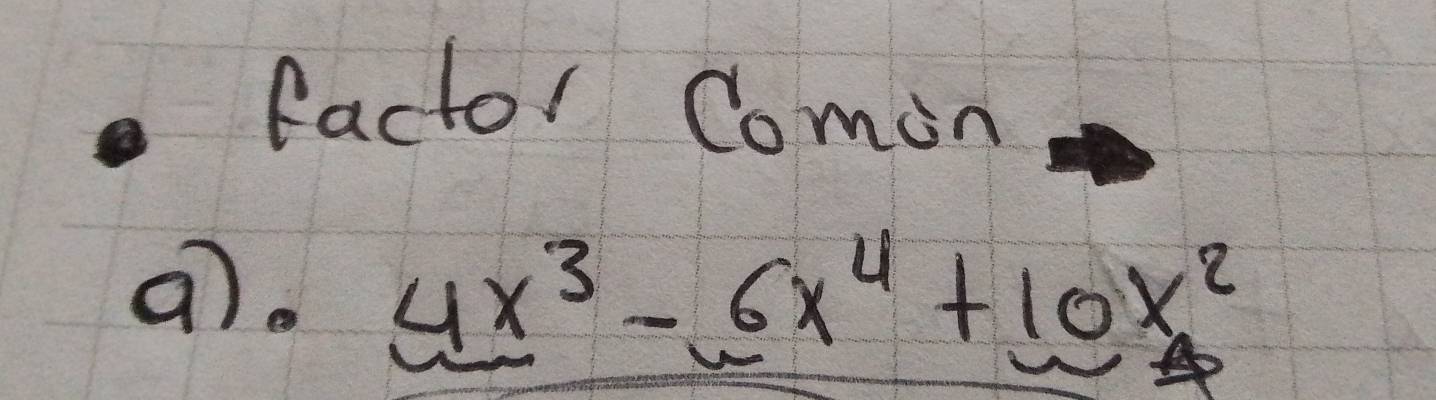 • factor Comün ➡
a). 4x³ - 6x⁴ + 10x²